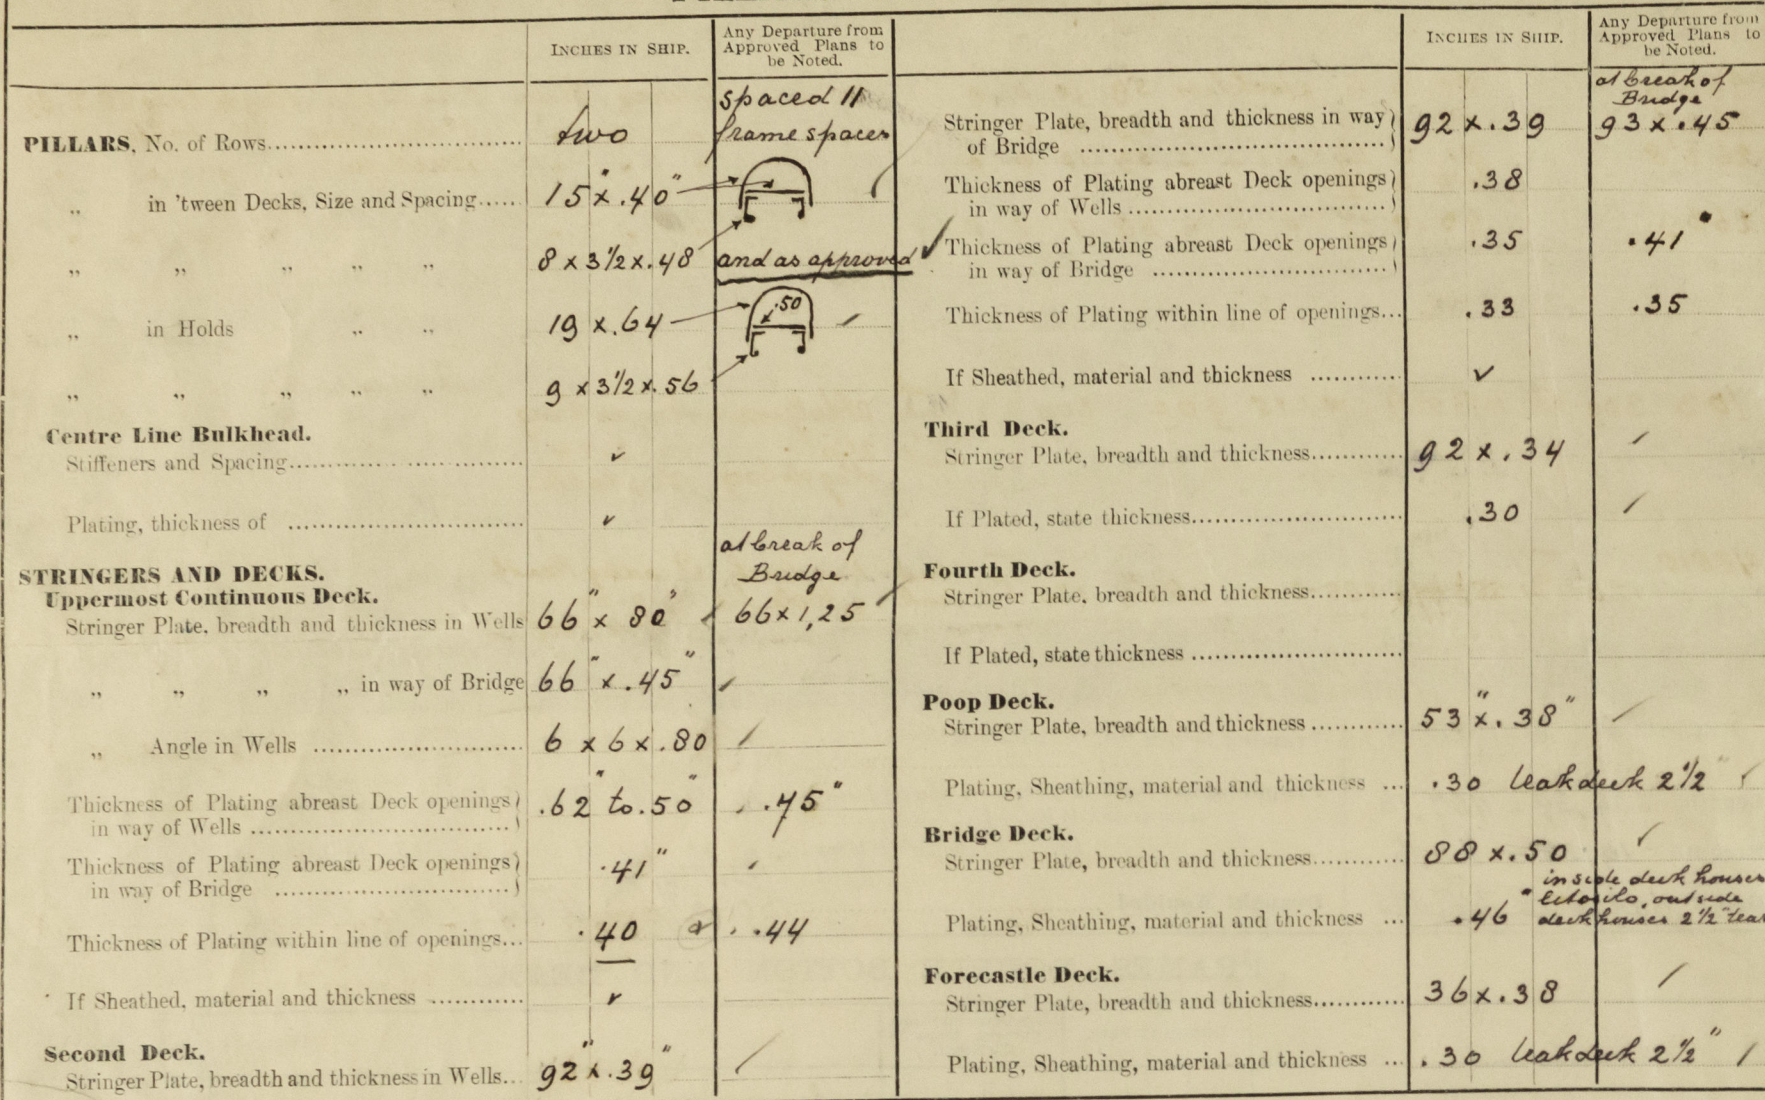 INCHES IN SHIP.
Any Departure from
Approved Plans to
be Noted.
PILLARS, No. of Rows.............................. two spaced 11
frame spaces
„ in 'tween Decks, Size and Spacing...... 15" x .40"
„ „ „ „ „ 8 x 3 1/2 x .48 and as approved
„ in Holds „ „ 19 x .64 .50
„ „ „ „ „ 9 x 3 1/2 x .56
Centre Line Bulkhead.
Stiffeners and Spacing.............................. ✓
Plating, thickness of .............................. ✓
STRINGERS AND DECKS.
Uppermost Continuous Deck.
at break of
Bridge
Stringer Plate, breadth and thickness in Wells 66" x 80" 66 x 1,25
„ „ „ „ in way of Bridge 66" x .45" ✓
„ Angle in Wells .............................. 6 x 6 x .80 ✓
Thickness of Plating abreast Deck openings)
in way of Wells ..............................) .62" to .50" .45"
Thickness of Plating abreast Deck openings)
in way of Bridge ..............................) .41"
Thickness of Plating within line of openings... .40 .44
If Sheathed, material and thickness ............ ✓
Second Deck.
Stringer Plate, breadth and thickness in Wells... 92" x .39" ✓
INCHES IN SHIP.
Any Departure from
Approved Plans to
be Noted.
at break of
Bridge
Stringer Plate, breadth and thickness in way)
of Bridge ..............................) 92 x .39 93 x .45
Thickness of Plating abreast Deck openings)
in way of Wells ..............................) .38
Thickness of Plating abreast Deck openings)
in way of Bridge ..............................) .35 .41
Thickness of Plating within line of openings... .33 .35
If Sheathed, material and thickness ............ ✓
Third Deck.
Stringer Plate, breadth and thickness............ 92 x .34 ✓
If Plated, state thickness.............................. .30 ✓
Fourth Deck.
Stringer Plate, breadth and thickness............
If Plated, state thickness ..............................
Poop Deck.
Stringer Plate, breadth and thickness ............ 53" x .38" ✓
Plating, Sheathing, material and thickness ... .30 teak deck 2 1/2" ✓
Bridge Deck.
Stringer Plate, breadth and thickness............ 88 x .50 ✓
inside deck houses
outside
Plating, Sheathing, material and thickness ... .46 deck houses 2 1/2" tea
Forecastle Deck.
Stringer Plate, breadth and thickness............ 36 x .38 ✓
Plating, Sheathing, material and thickness ... .30 teak deck 2 1/2" ✓